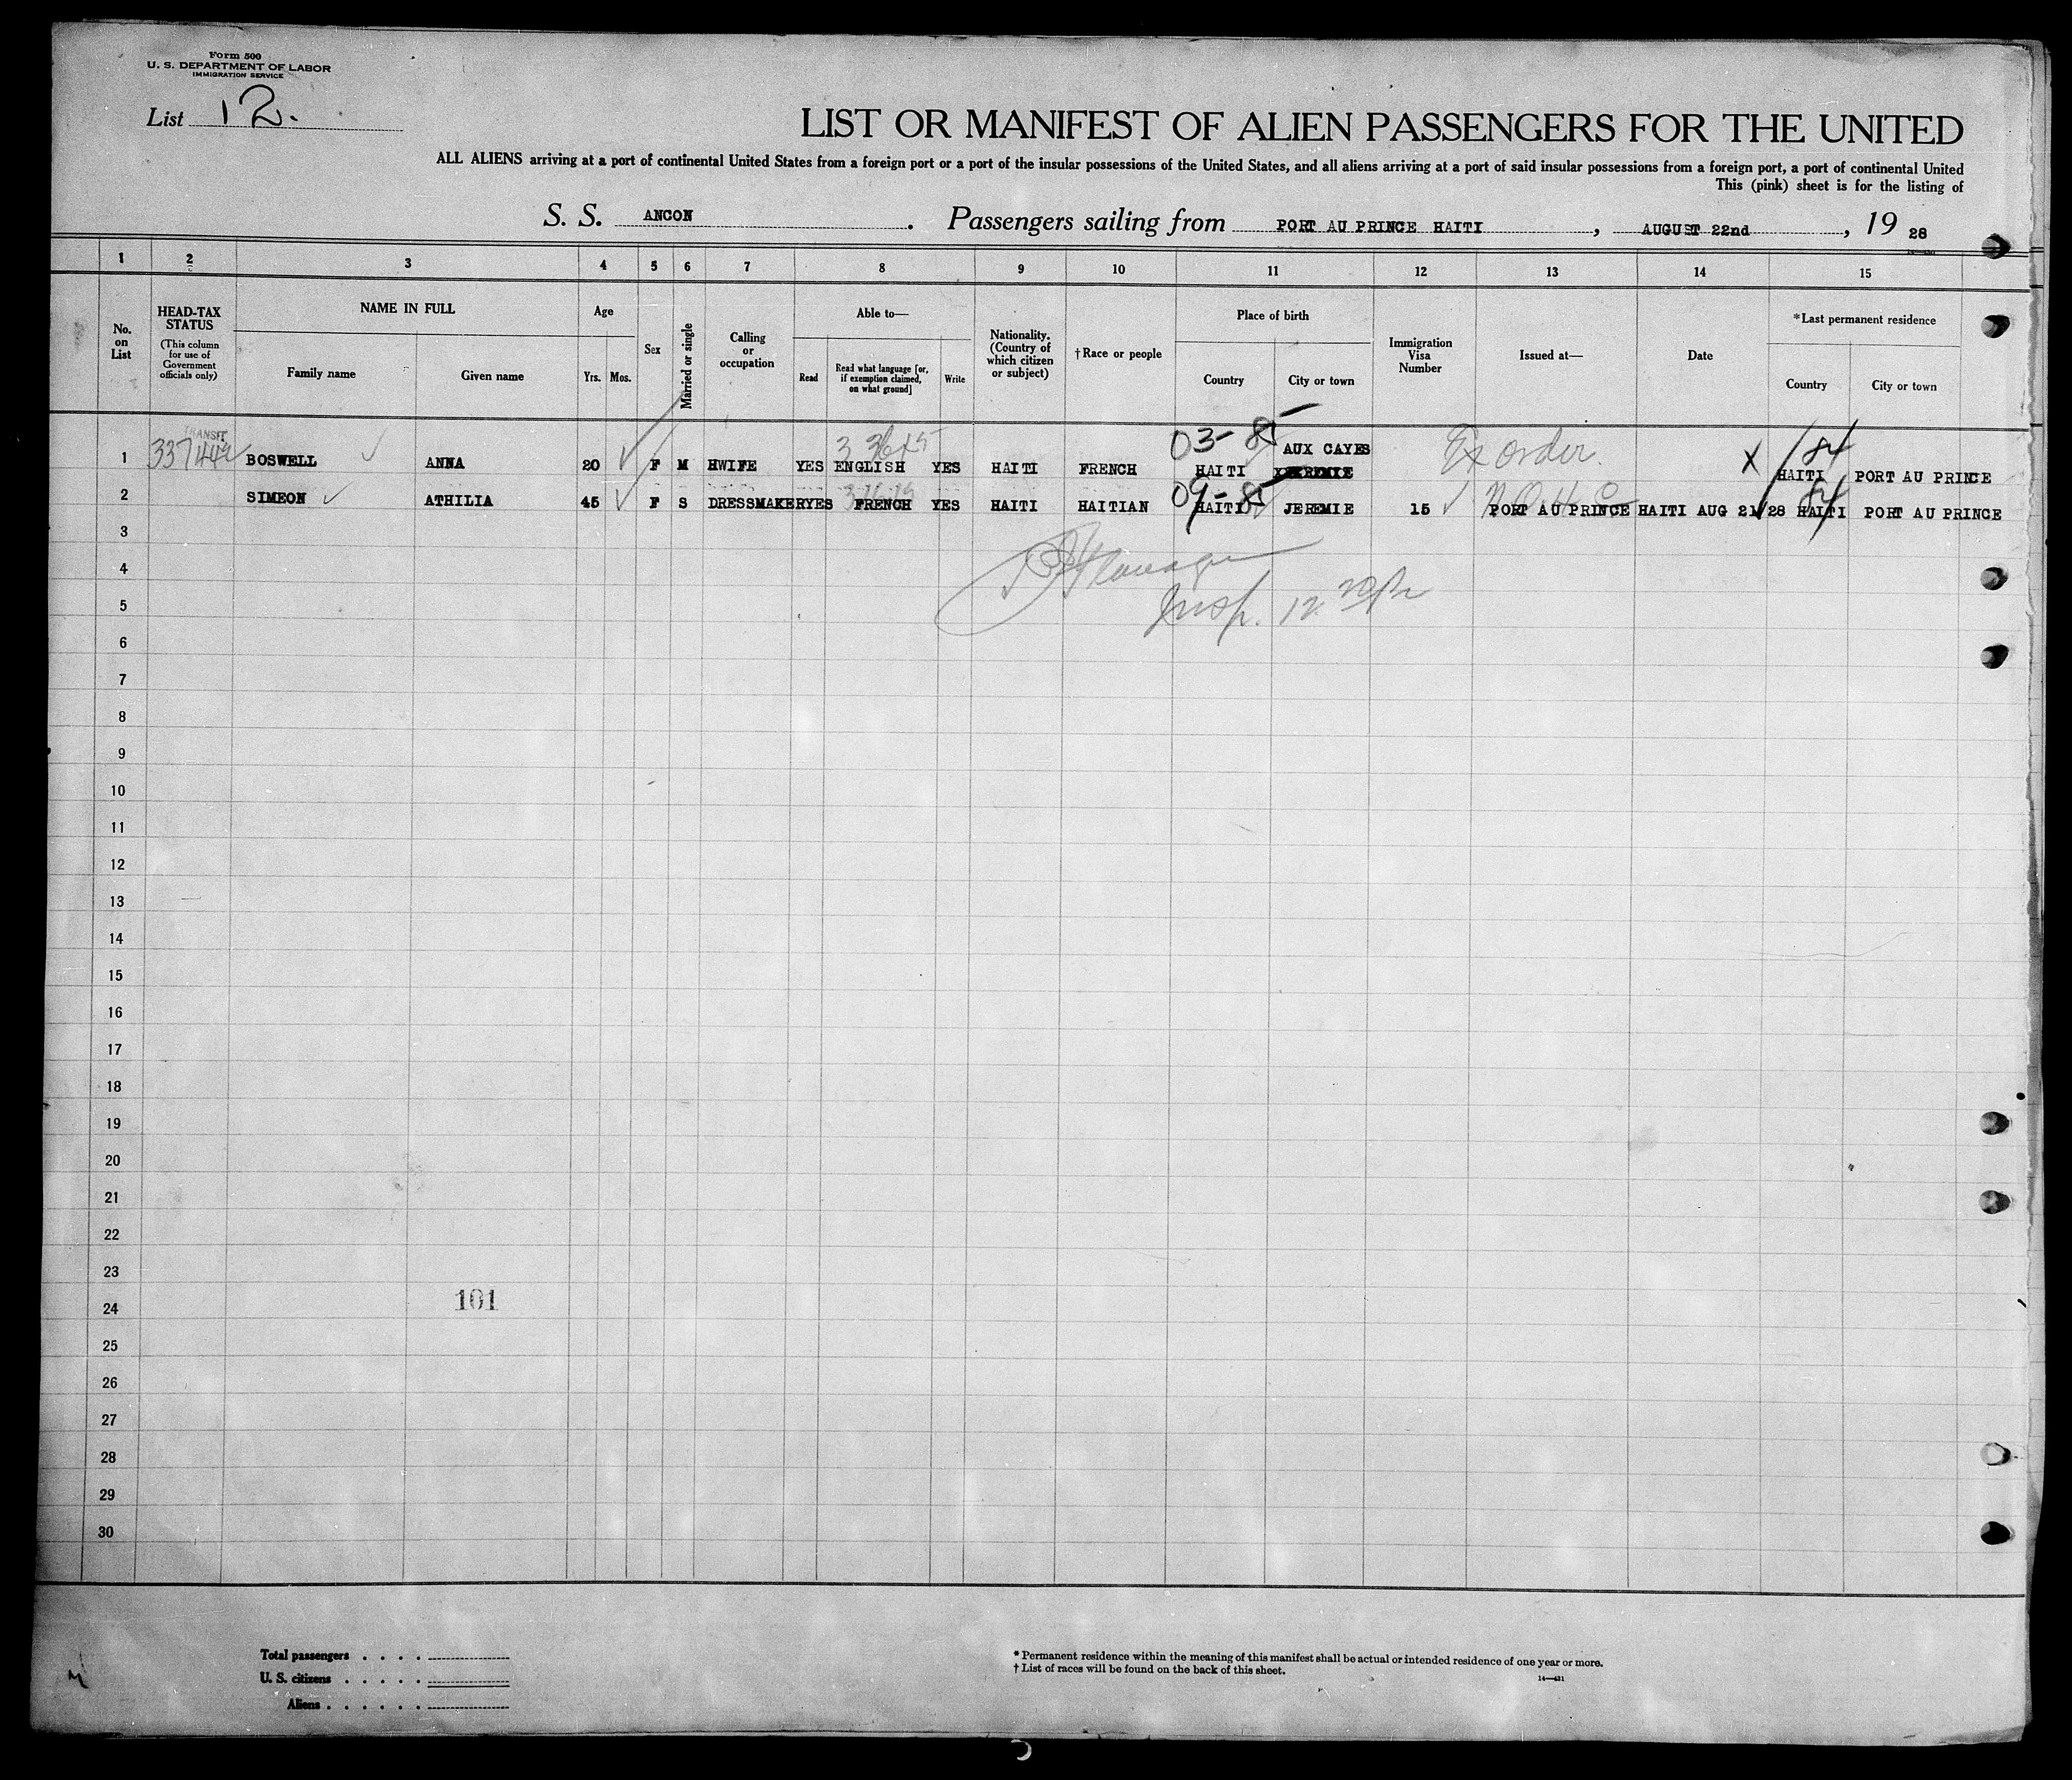 Form 500
U. S. DEPARTMENT OF LABOR
IMMIGRATION SERVICE
List 12.
LIST OR MANIFEST OF ALIEN PASSENGERS FOR THE UNITED
ALL ALIENS arriving at a port of continental United States from a foreign port or a port of the insular possessions of the United States, and all aliens arriving at a port of said insular possessions from a foreign port, a port of continental United
This (pink) sheet is for the listing of
S. S. ANCON. Passengers sailing from PORT AU PRINCE HAITI, AUGUST 22nd, 19 28
1 2 3 4 5 6 7 8 9 10 11 12 13 14 15
No. on List
HEAD-TAX STATUS
(This column for use of Government officials only)
NAME IN FULL
Family name
Given name
Age
Yrs. Mos.
Sex
Married or single
Calling or occupation
Able to—
Read
Read what language [or, if exemption claimed, on what ground]
Write
Nationality. (Country of which citizen or subject)
†Race or people
Place of birth
Country
City or town
Immigration Visa Number
Issued at—
Date
*Last permanent residence
Country
City or town
TRANSIT
1 BOSWELL ANNA 20 F M HWIFE YES ENGLISH YES HAITI FRENCH HAITI AUX CAYES Ex order. X HAITI PORT AU PRINCE
2 SIMEON ATHILIA 45 F S DRESSMAKER YES FRENCH YES HAITI HAITIAN HAITI JEREMIE 15 PORT AU PRINCE HAITI AUG 21/28 HAITI PORT AU PRINCE
3
4
Insp. 12
5
6
7
8
9
10
11
12
13
14
15
16
17
18
19
20
21
22
23
101
24
25
26
27
28
29
30
Total passengers
U. S. citizens
Aliens
* Permanent residence within the meaning of this manifest shall be actual or intended residence of one year or more.
† List of races will be found on the back of this sheet.
14—431